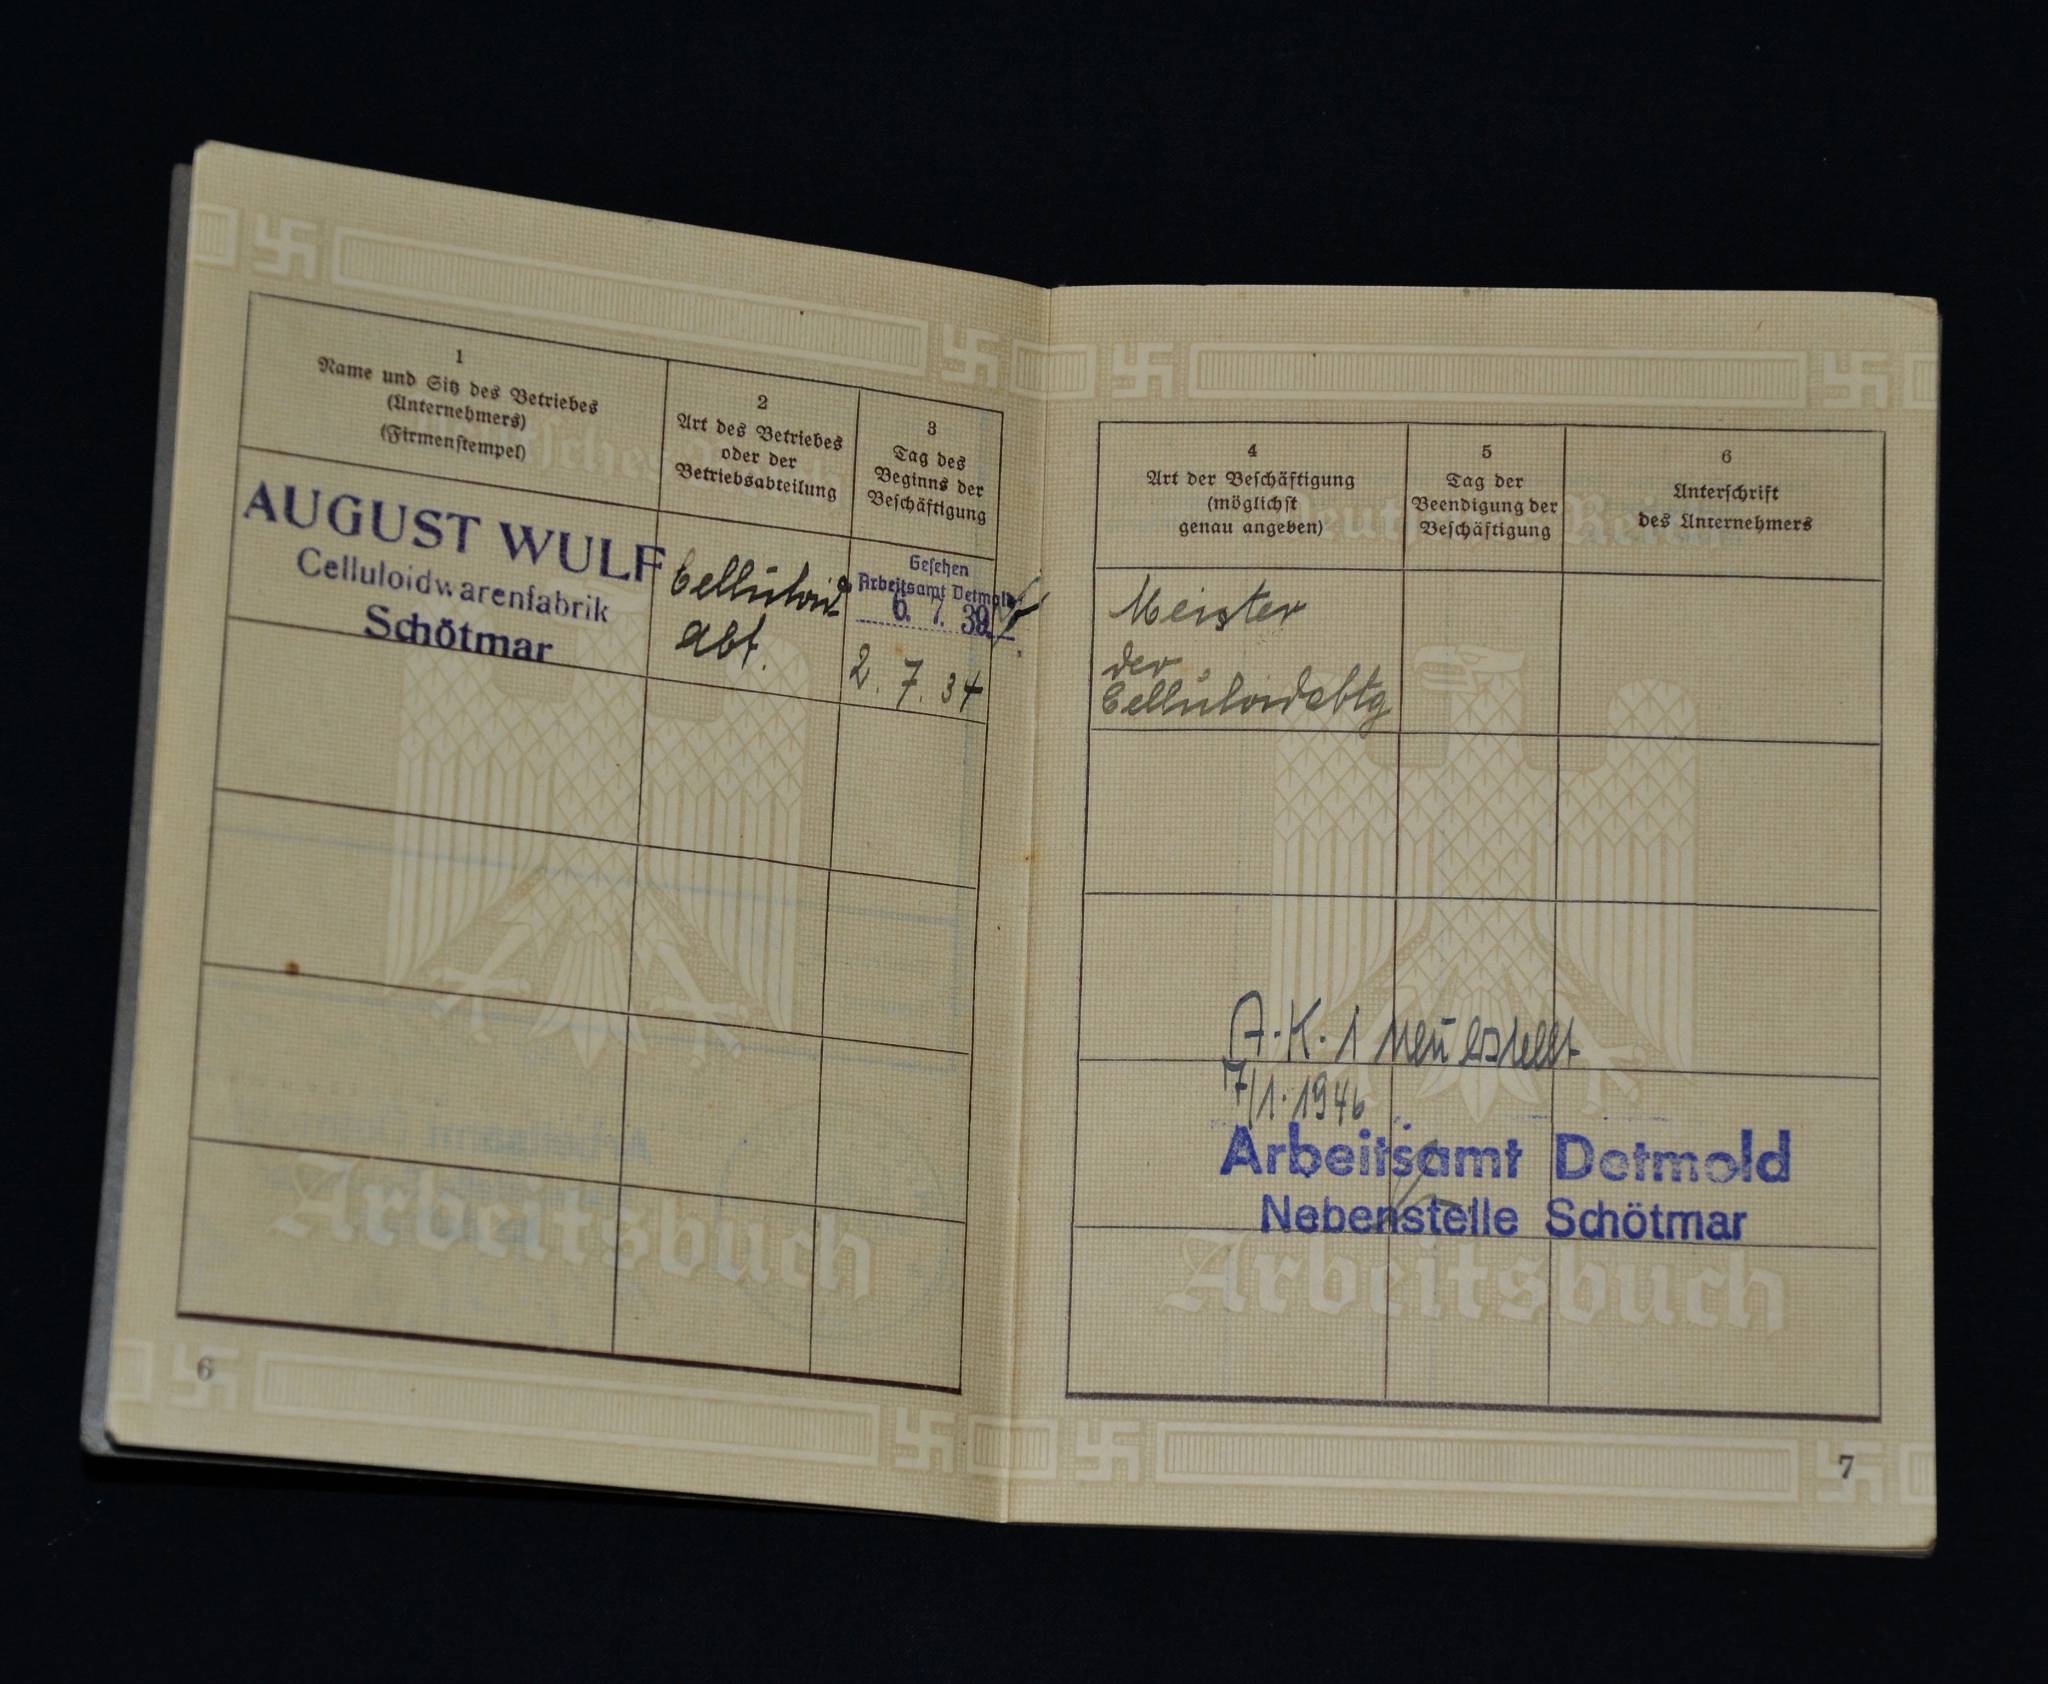 1
Name und Sitz des Betriebes
(Unternehmers)
(Firmenstempel)
2
Art des Betriebes
oder der
Betriebsabteilung
3
Tag des
Beginns der
Beschäftigung
AUGUST WULF
Celluloidwarenfabrik
Schötmar
Celluloid-
abt.
Gesehen
Arbeitsamt Detmold
6. 7. 39
2. 7. 34
Arbeitsbuch
6
4
Art der Beschäftigung
(möglichst
genau angeben)
5
Tag der
Beendigung der
Beschäftigung
6
Unterschrift
des Unternehmers
Deutsches Reich
Meister
der
Celluloidabtg
A.K. 1 neu
17/1. 1946
Arbeitsamt Detmold
Nebenstelle Schötmar
Arbeitsbuch
7